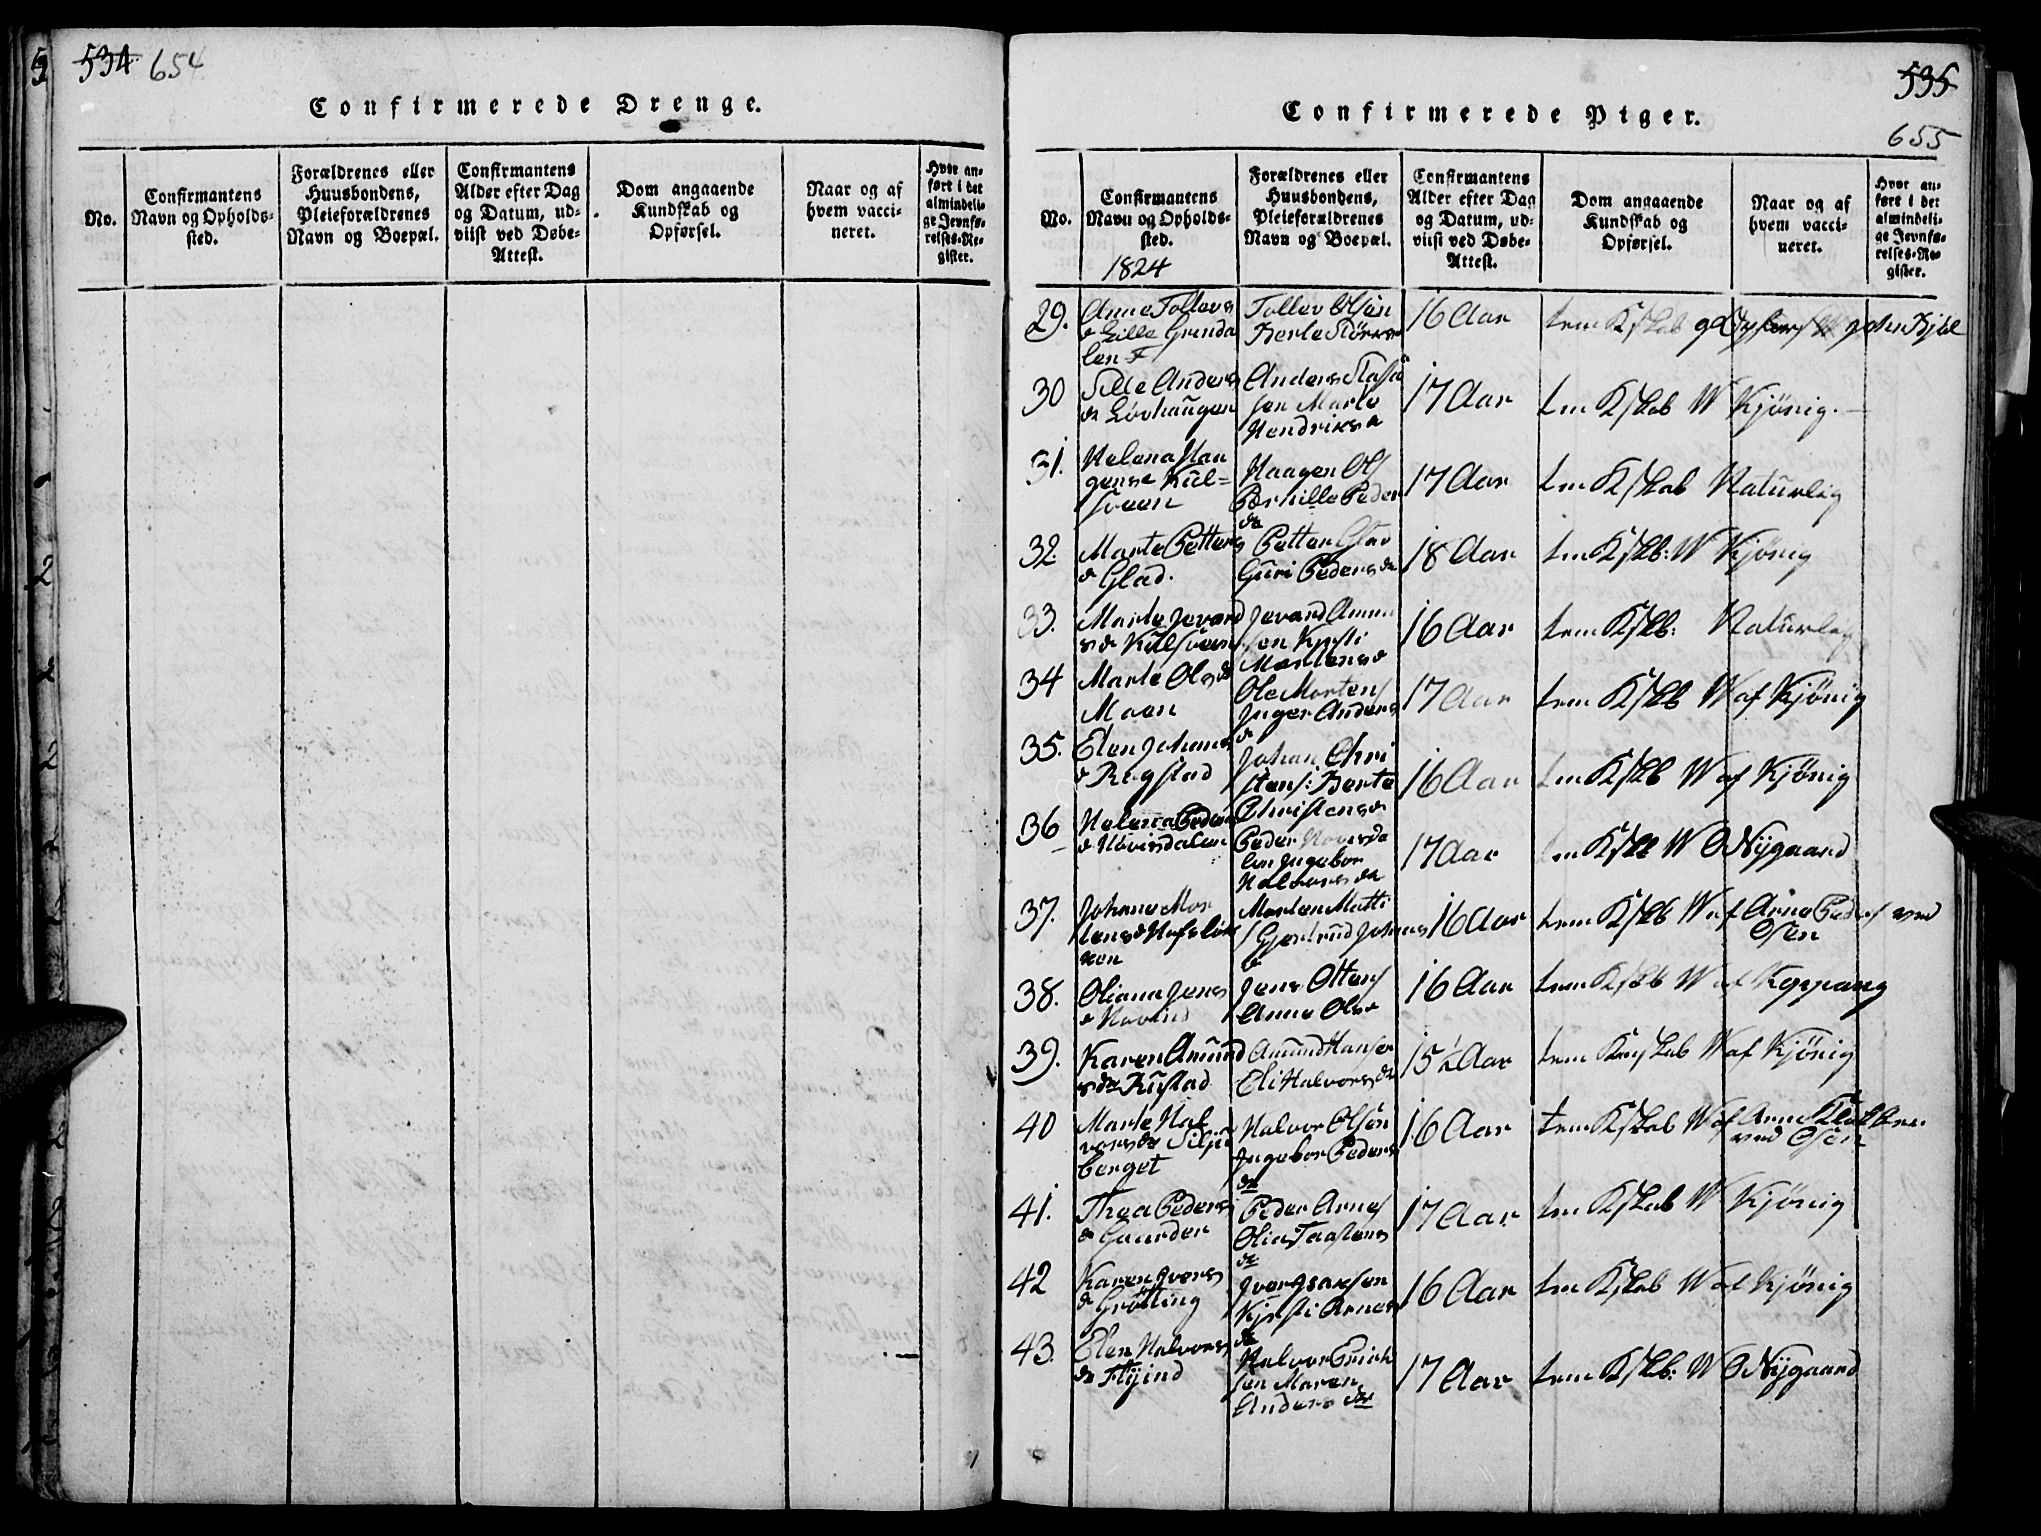 534 654
Confirmerede Drenge.
No.
Confirmantens
Navn og Opholds-
sted.
Forældrenes eller
Huusbondens,
Pleieforældrenes
Navn og Boepæl.
Confirmantens
Alder efter Dag
og Datum, ud-
viist ved Døbe-
Attest.
Dom angaaende
Kundskab og
Opførsel.
Naar og af
hvem vacci-
neret.
Hvor an-
ført i det
almindeli-
ge Jevnfø-
relses-Re-
gister.
535
655
Confirmerede Piger.
No.
Confirmantens
Navn og Opholds-
sted.
1824
Forældrenes eller
Huusbondens,
Pleieforældrenes
Navn og Boepæl.
Confirmantens
Alder efter Dag
og Datum, ud-
viist ved Døbe-
Attest.
Dom angaaende
Kundskab og
Opførsel.
Naar og af
hvem vacci-
neret.
Hvor an-
ført i det
almindeli-
ge Jevnfø-
relses-Re-
gister.
29. Anne Tollevs
Lille Grinda
len
Tollev Olsen
Berte
16 Aar
Kskab
30 Sille Anders
dr Løvhaugen
Anders
sen Marte
Hendriks d
17 Aar
Kskab W Kjönig.
31. Helena Haa
gens d Kül=
sveen
Haagen Ols
Pernille Peder
dr
17 Aar
Kskab Naturlig
32. Marte Petters
d Glad.
Petter Glad
Guri Peders dr
18 Aar
Kskb: W Kjönig
33. Marte Jevard
s d Külsveen
Jevard Amun
sen Kjersti
Mortens d
16 Aar
Kskb: Naturlig
34 Marte Ols d
Moen
Ole Mortens
Inger Anders
d
17 Aar
Kskb W af Kjönig
35. Elen Johans
d Rugstad
Johan Chri
stens: Berte
Christens d
16 Aar
Kskb W af Kjönig
36 Helena Peders
d Hovisdalen
Peder Hovisda
len Ingebor
Halvors dr
17 Aar
Kskb W O Nÿgaard
37. Johane Mor
tens d Hafslük
ken
Morten Matti
s Gjertrud Johans
d
16 Aar
Kskb W af Arne Peders ved
Osen
38. Oliana Jens
d
Jens Ottens
Anne Ols d
16 Aar
Kskb W af Koppang
39. Karen Amund
s dr Rustad
Amund Hansen
Eli Halvors dr
15 ½ Aar
Kskab W af Kjönig
40 Marte Hal
vors dr Silju
berget
Halvor Olsen
Ingebor Peders
dr
16 Aar
Kskab W af Arne
ved Osen
41. Thea Peders
d Gaarder
Peder Arnes
Olia
dr
17 Aar
Kskab W Kjönig
42 Karen Ivers
d Grötting
Iver Isaksen
Kjersti Arnes
dr
16 Aar
Kskab W af Kjönig
43. Elen Halvors
dr Flÿind
Halvor Erich
sen Maren
Anders dr
17 Aar
Kskb: W O Nÿgaard